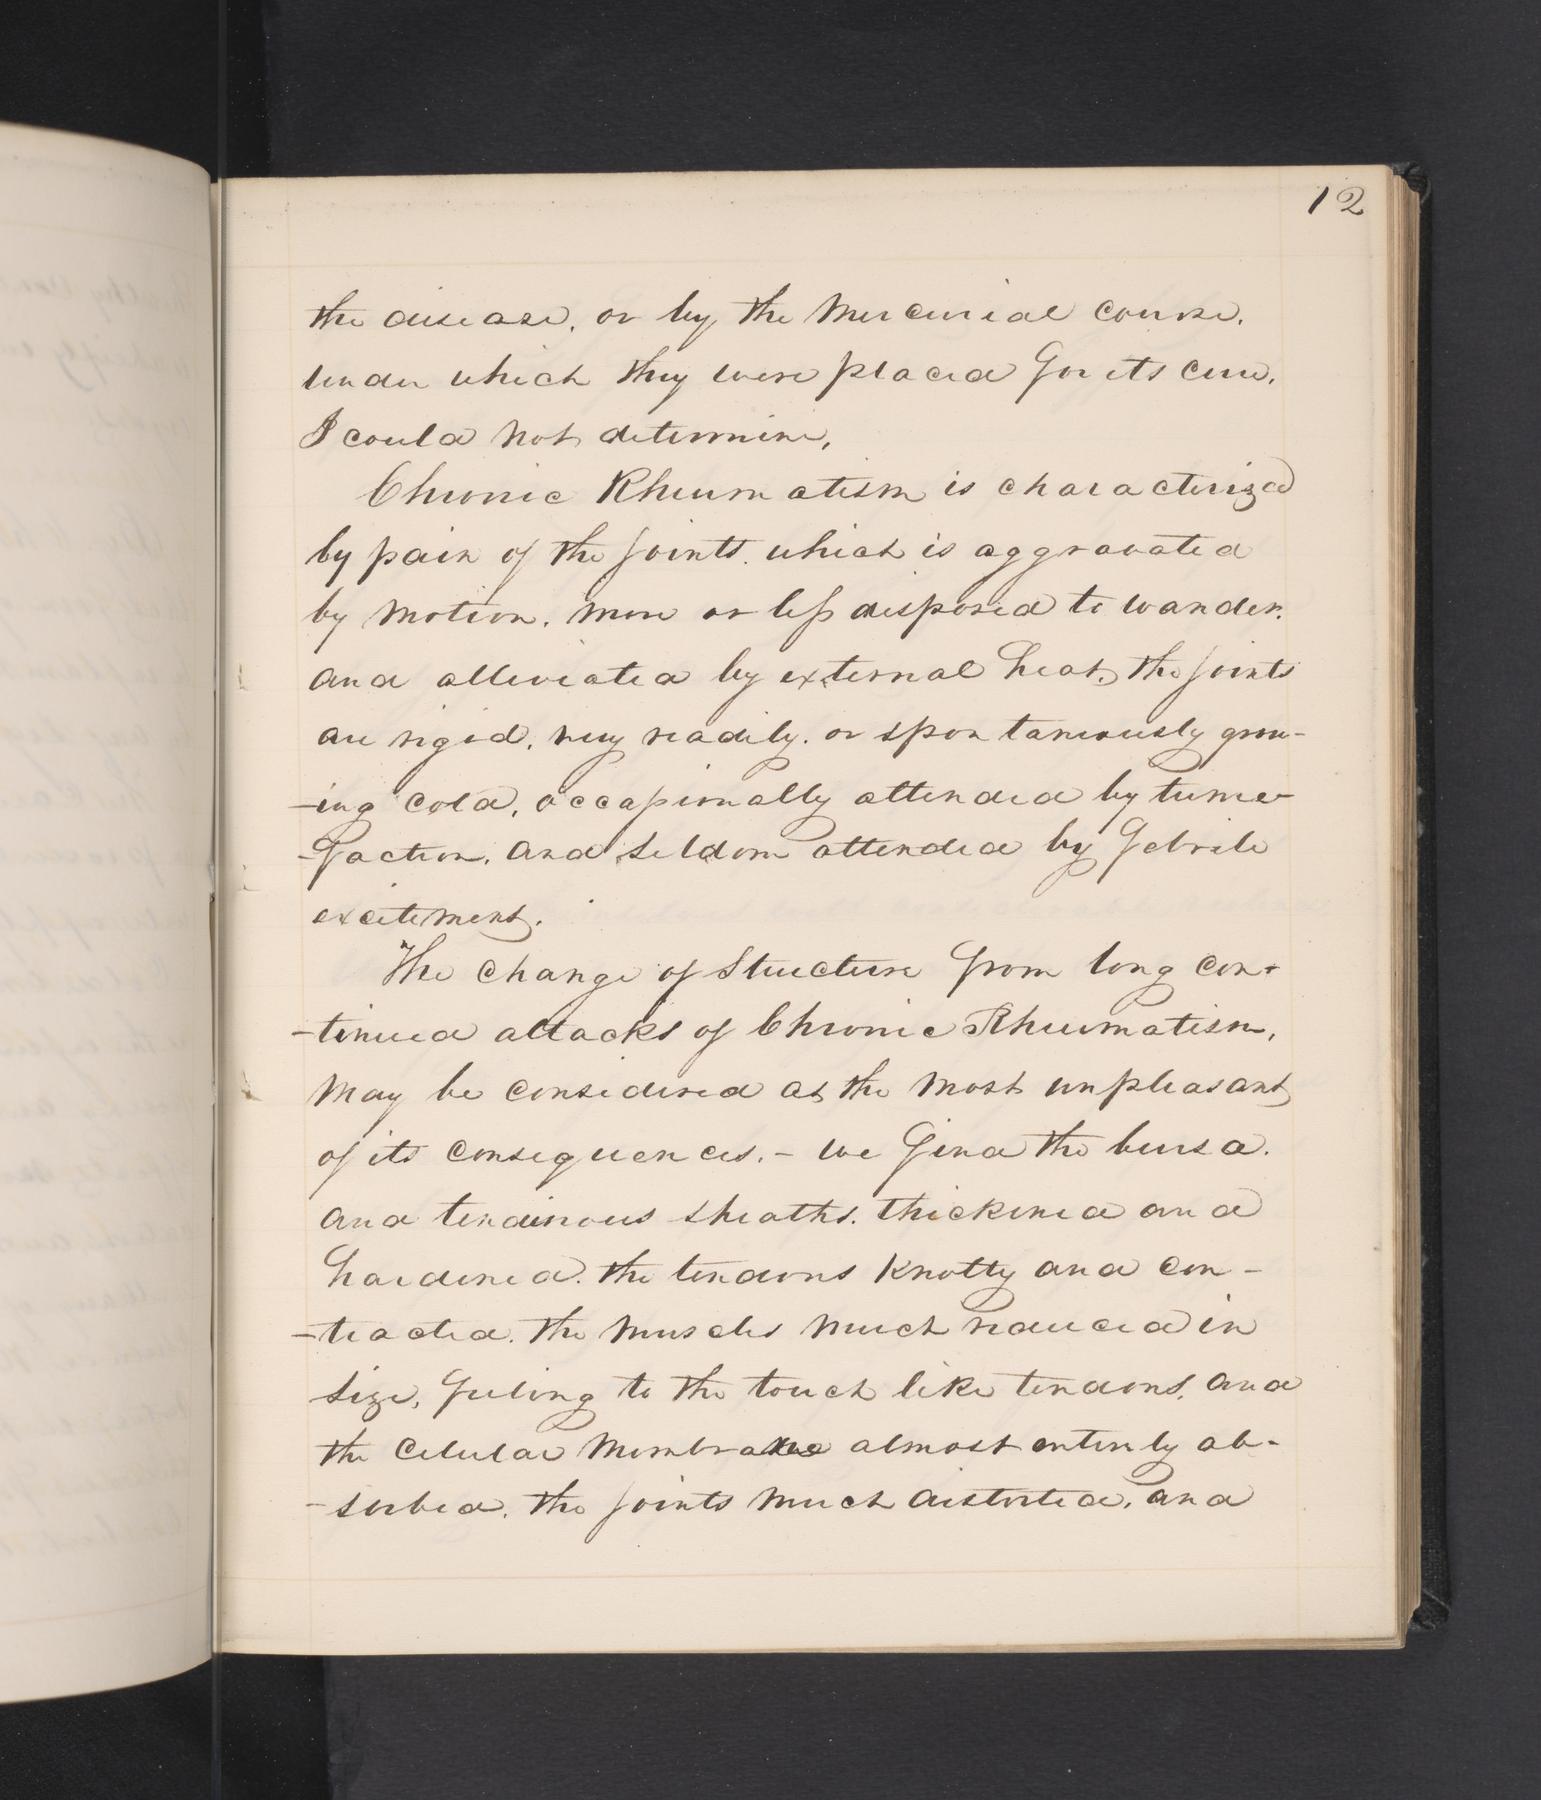 12
the disease, or by the Mercurial course,
under which they were placed for its cure,
I could not determine,
Chronic Rheumatism is characterized
by pain of the joints, which is aggravated
by motion, more or less disposed to wander,
and alleviated by external heat, the joints
are rigid, very readily, or spontaneously grow-
-ing cold, occassionally attended by tume-
-faction, and seldom attended by febrile
excitement.
The change of Structure from long con-
-tinued attacks of Chronic Rheumatism,
May be considered as the most unpleasant
of its consequences. - we find the bursa,
and tendinous sheaths, thickened and
hardened, the tendons Knotty and con-
-tracted, the Muscles Much reduced in
size, feeling to the touch like tendons, and
the Celular Membrane almost entirely ab-
-sorbed, the joints Much distorted, and